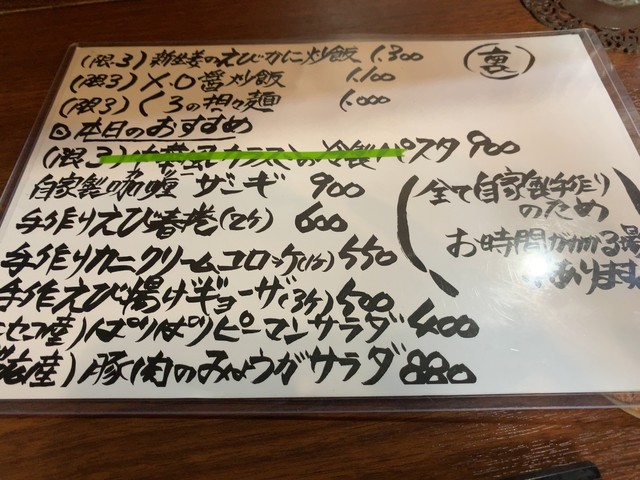 (限3) 新生姜のえびかに炒飯 1.300
(裏)
(限3) X.O醤炒飯 1.100
(限3) くろの担々麺 1.000
本日のおすすめ
(限3) 中華風カラスミの冷製パスタ 900
自家製咖喱ザンギ 900
手作りえび春巻(2ケ) 600
手作りカニクリームコロッケ(1ケ) 550
手作えび揚げギョーザ(3ケ) 500
セコ産)ぱりぱりピーマンサラダ 400
産)豚肉のみょうがサラダ 880
全て自家製手作り
のため
お時間がかかる場
あります